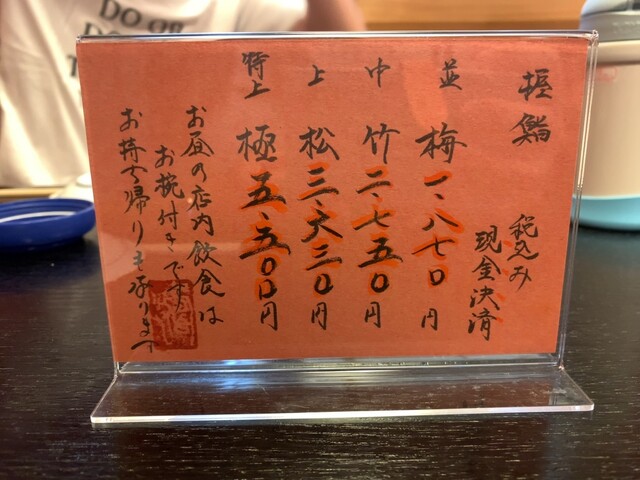 握鮨
税込み
現金決済
並 梅 一、八七〇円
中 竹 二、七五〇円
上 松 三、六三〇円
特上 極 五、五〇〇円
お昼の店内飲食は
お椀付きです
お持ち帰りも承ります
DO OR
DO
T